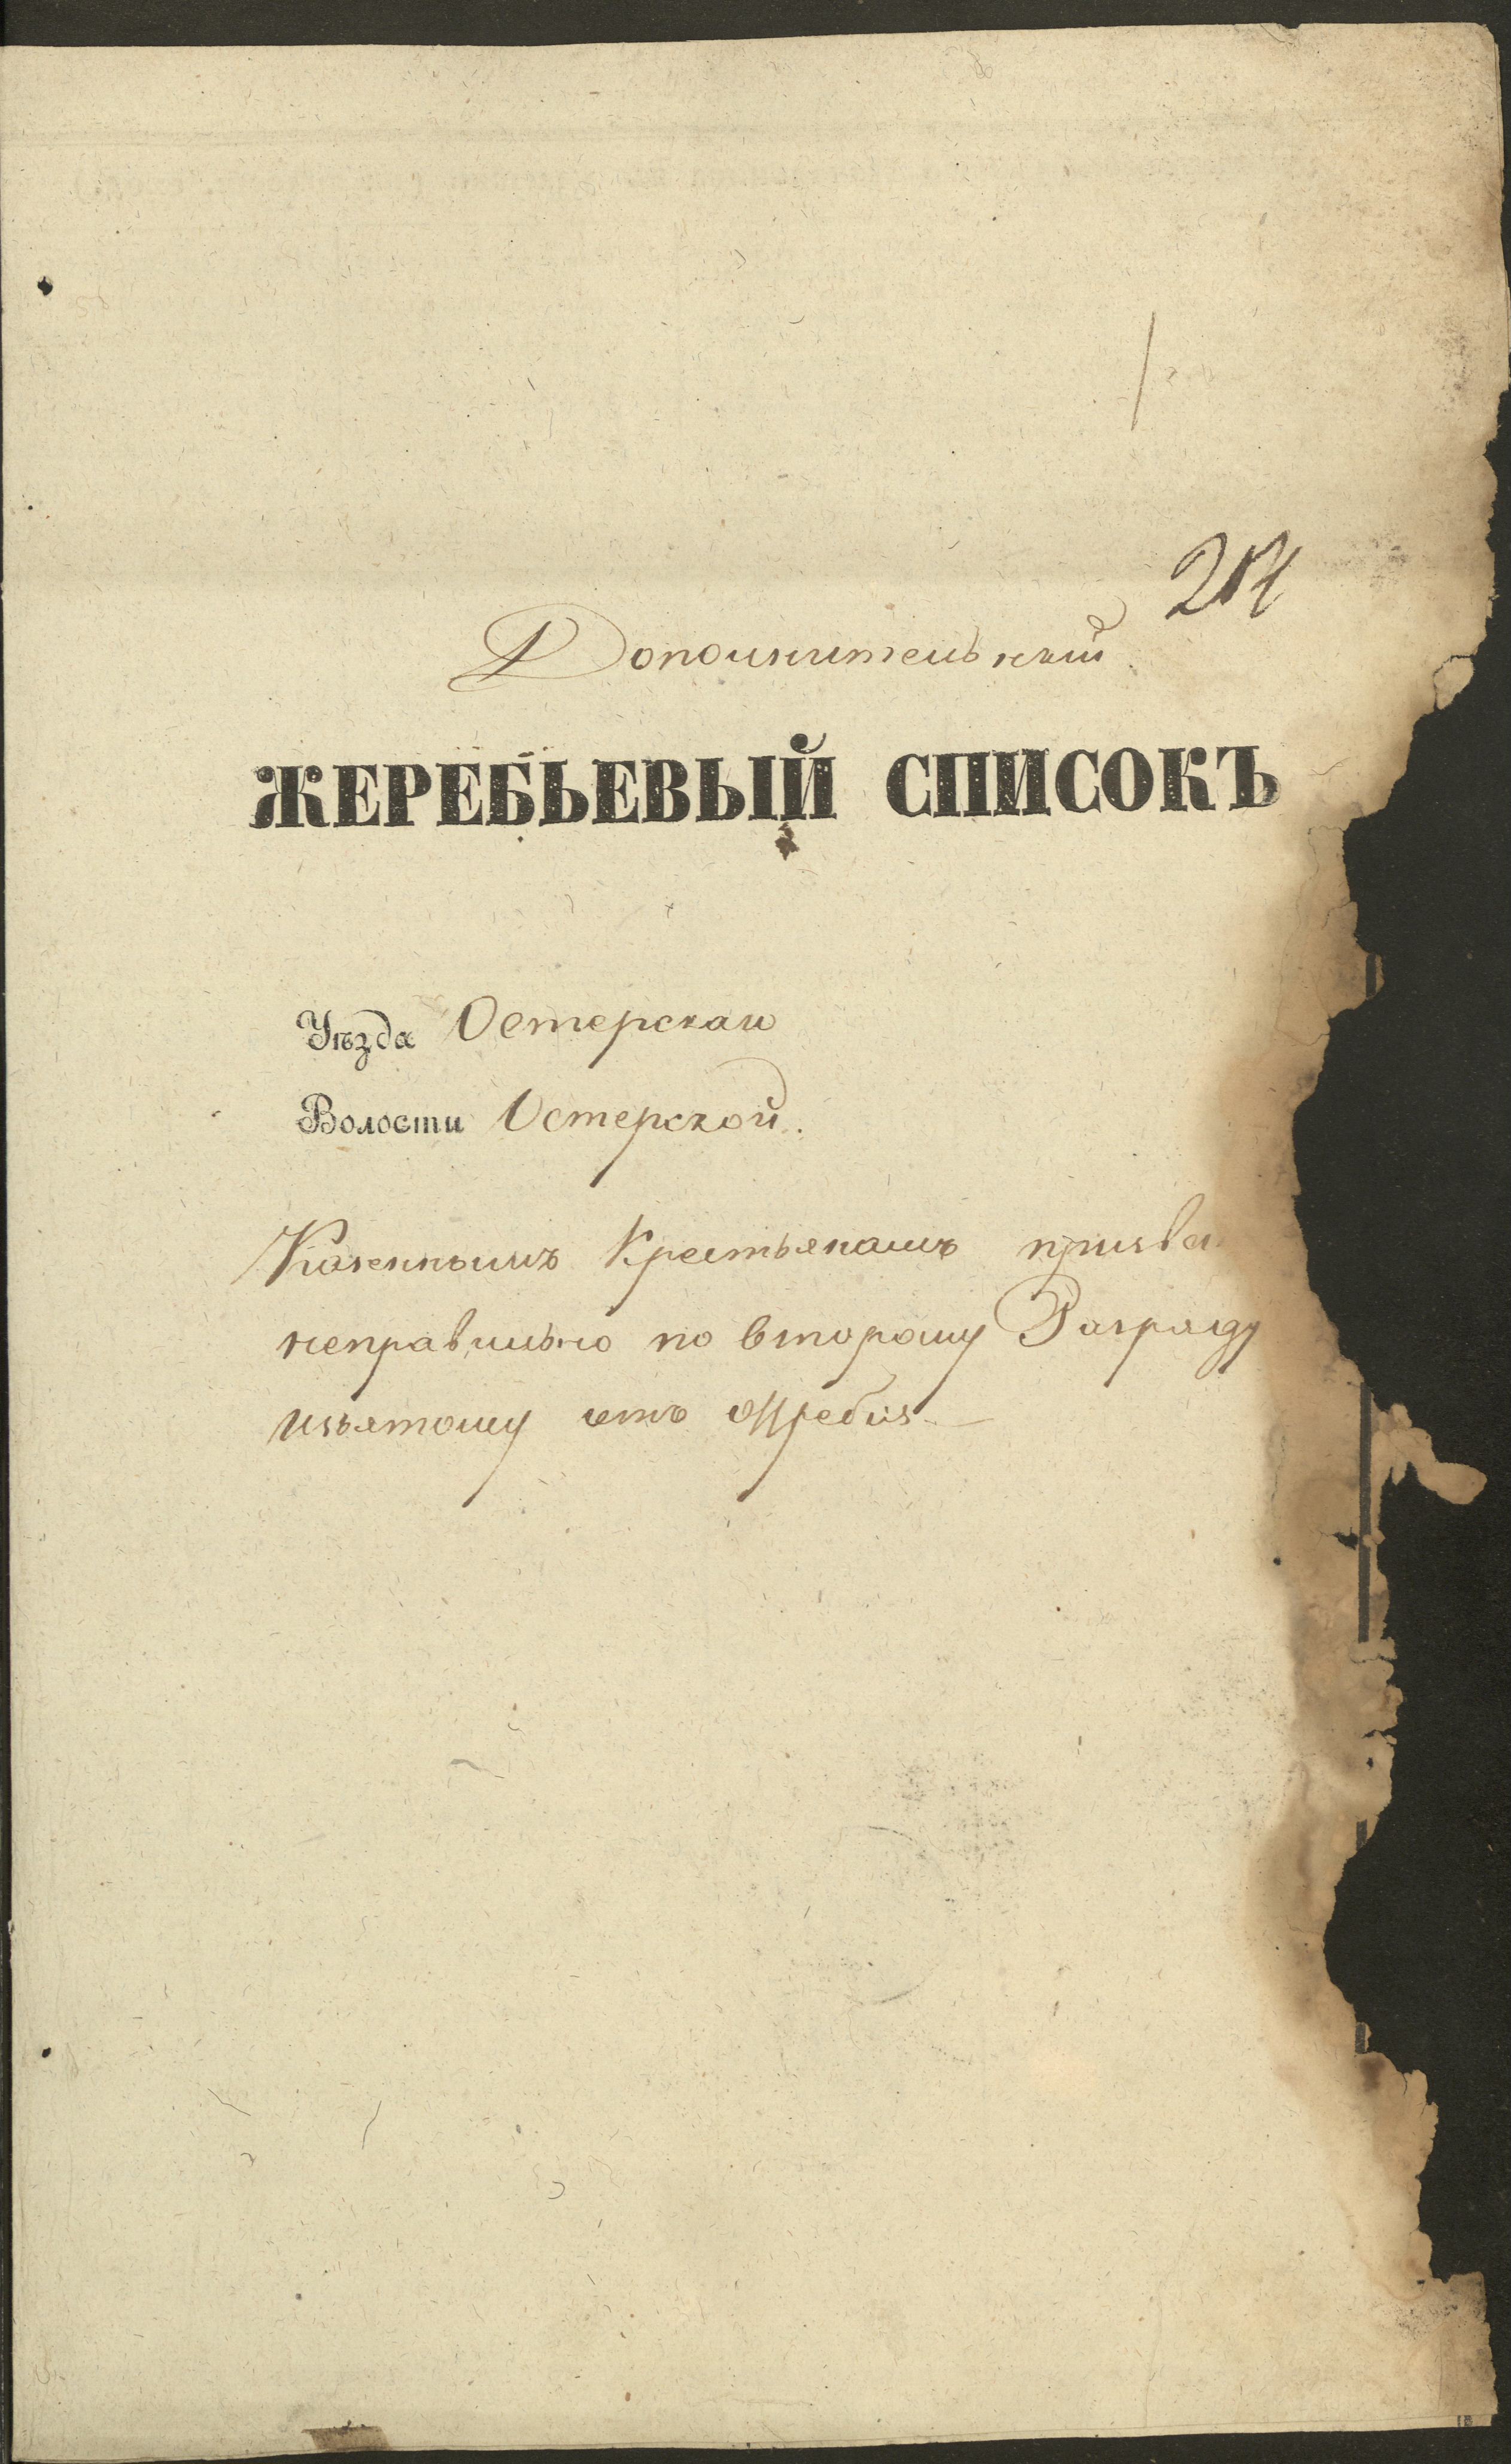 Дополнительный
ЖЕРЕБЬЕВЫЙ СПИСОКЪ
Уѣзда Остерскаго
Волости Остерской.
Казеннымъ Крестьянамъ
неправильно по второму Разряду
изъятому отъ жребія.